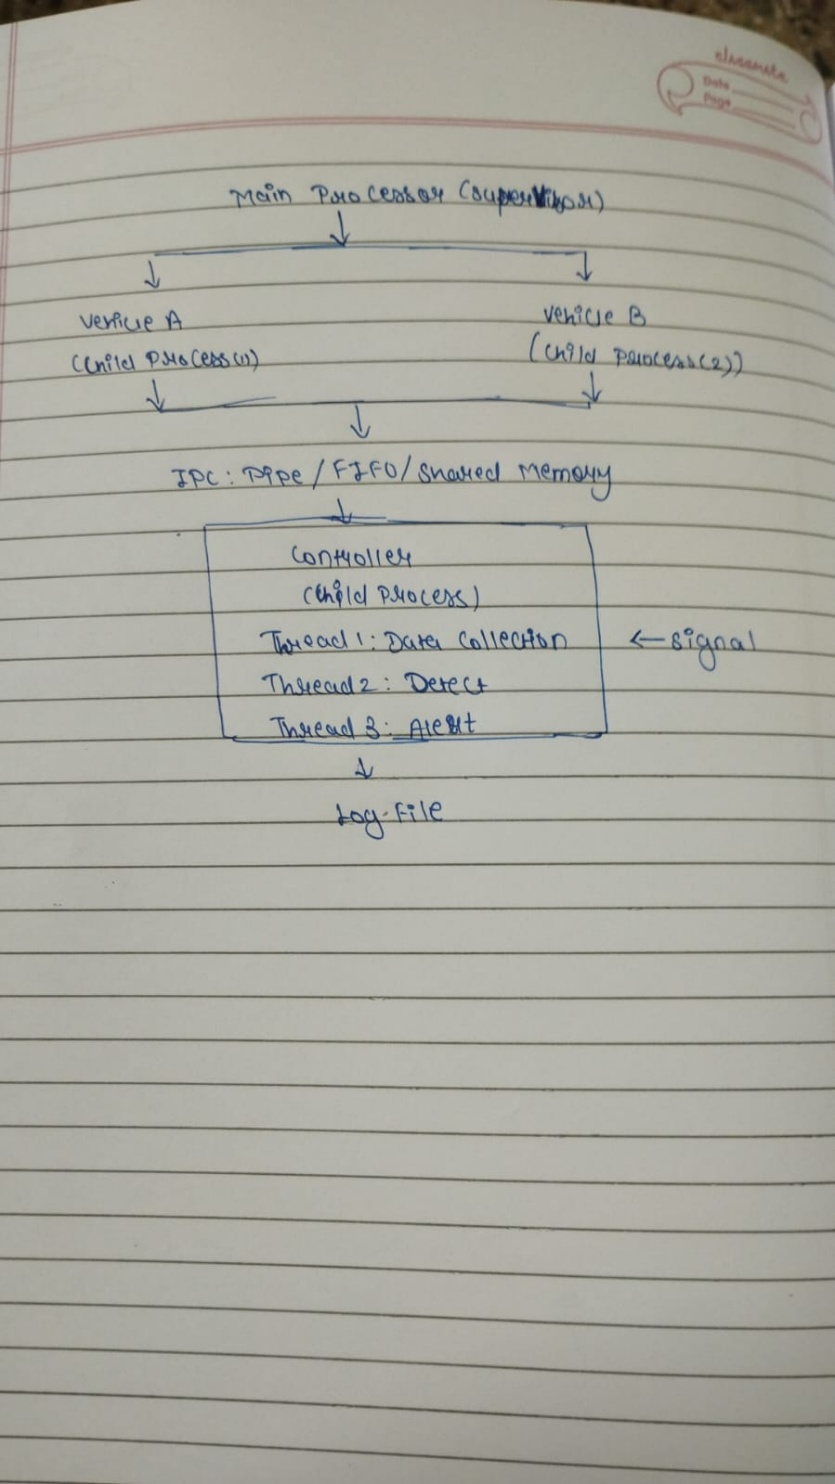 classmate
Date
Page
Main Processor (Supervisor)
Vehicle A
Vehicle B
(Child Process(1))
(Child Process(2))
IPC: Pipe / FIFO / Shared Memory
Controller
(Child Process)
Thread 1: Data Collection
← Signal
Thread 2: Detect
Thread 3: Alert
Log-File